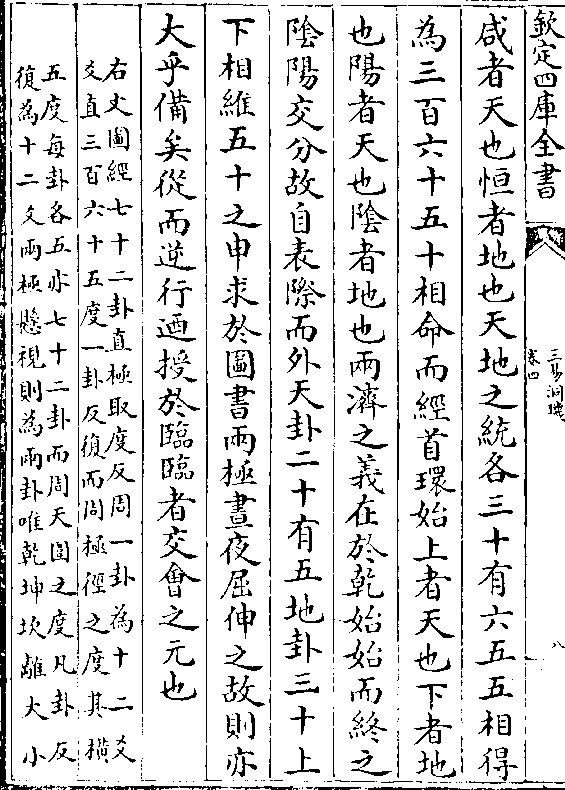 欽定四庫全書
三易洞璣
卷四
八
咸者天也恒者地也天地之統各三十有六五五相得
為三百六十五十相命而經首環始上者天也下者地
也陽者天也陰者地也兩濟之義在於乾始始而終之
陰陽交分故自表際而外天卦二十有五地卦三十上
下相維五十之申求於圖書兩極晝夜屈伸之故則亦
大乎備矣從而逆行迺授於臨臨者交會之元也
右文圖經七十二卦直極取度反周一卦為十二爻
爻直三百六十五度一卦反復而周極徑之度其橫
五度每卦各五亦七十二卦而周天圓之度凡卦反
復為十二爻兩極懸視則為兩卦唯乾坤坎離大小